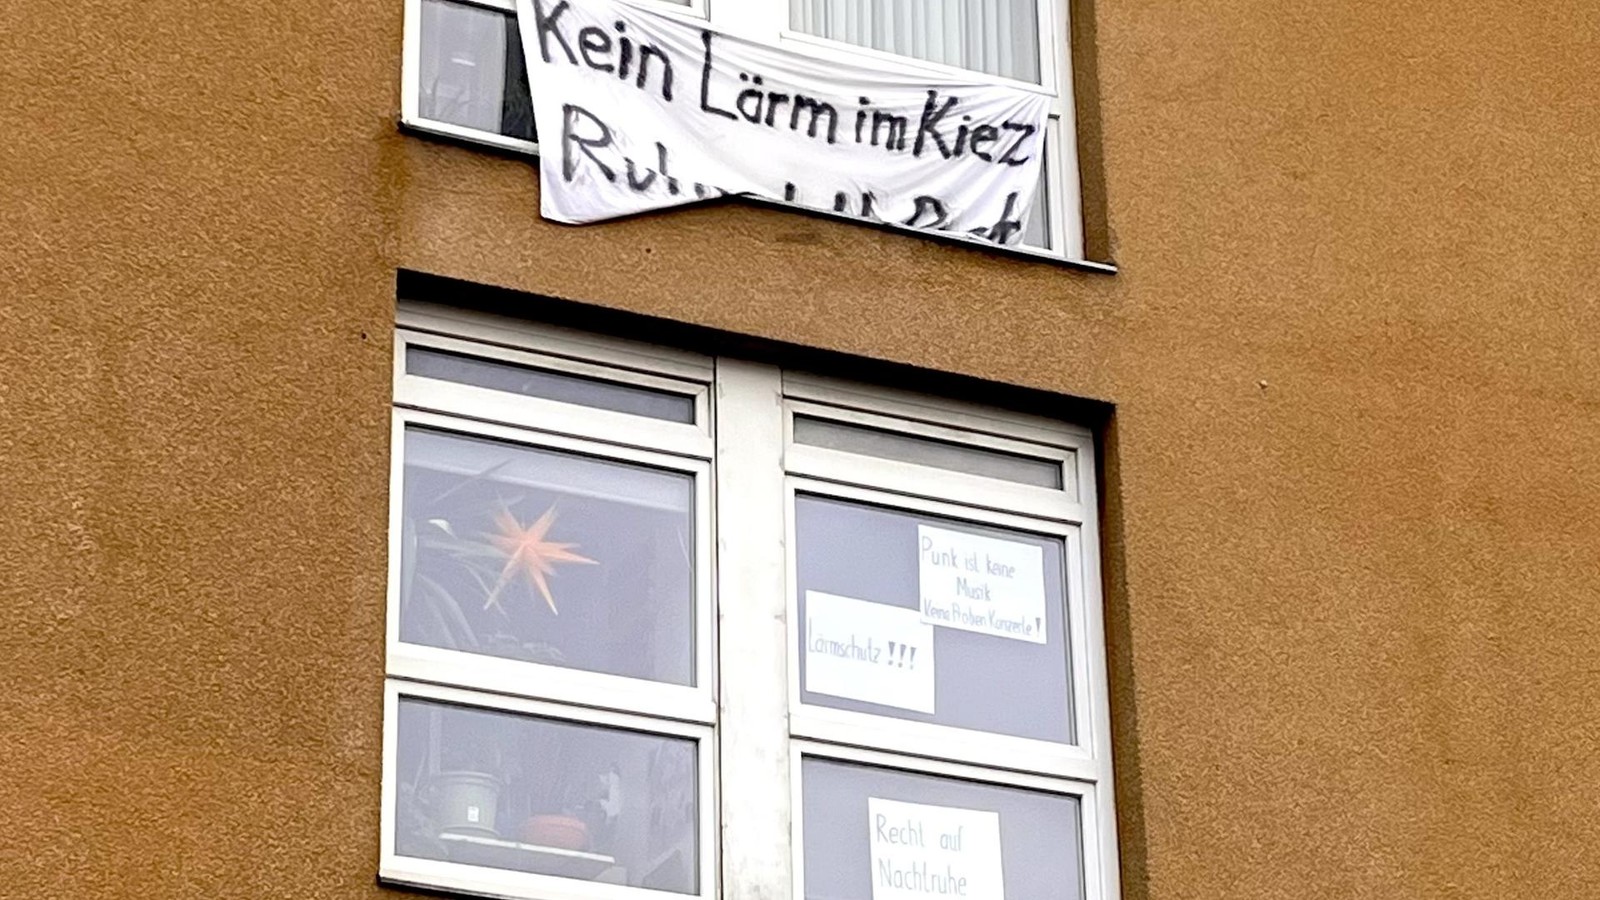 Kein Lärm im Kiez
Punk ist keine
Musik
Keine Proben Konzerte!
Lärmschutz!!!
Recht auf
Nachtruhe